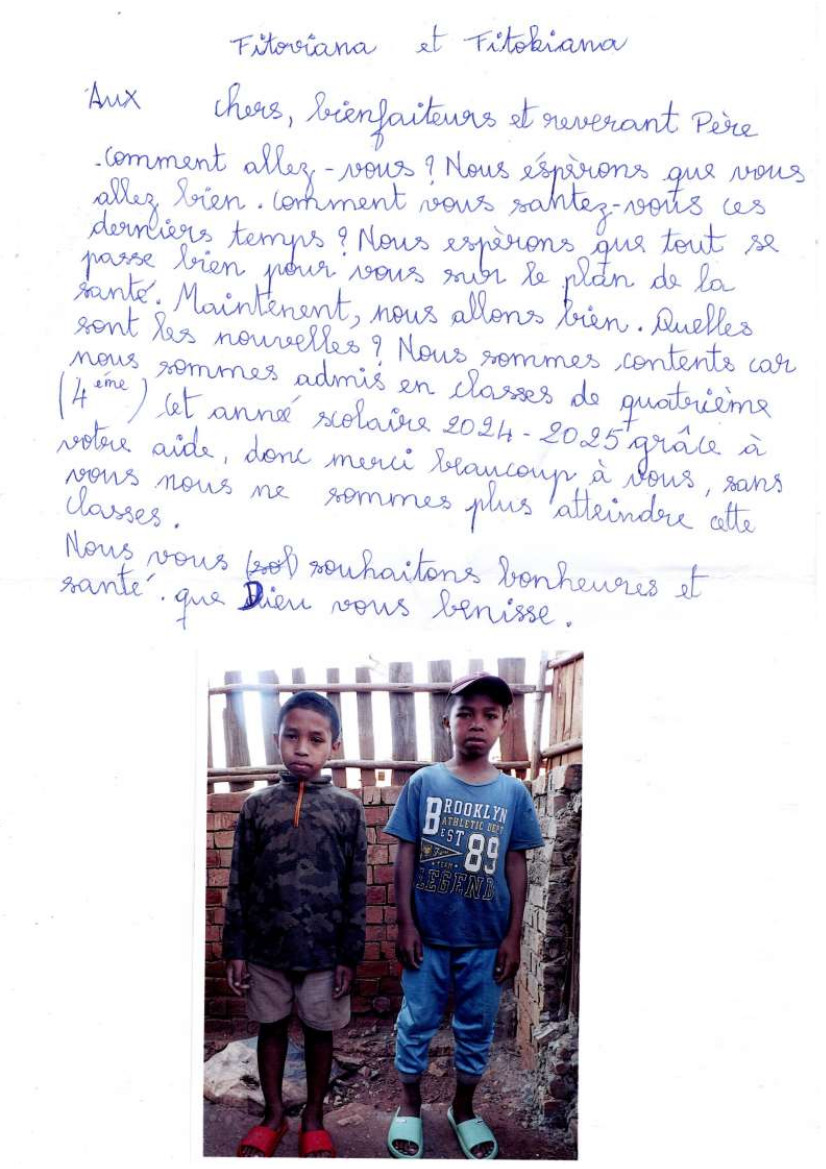 Fitoviana et Fitokiana
Aux chers, bienfaiteurs et reverant Père
.comment allez-vous ? Nous éspèrons que vous
allez bien. comment vous santez-vous ces
derniers temps ? Nous espèrons que tout se
passe bien pour vous sur le plan de la
santé. Maintenent, nous allons bien. Quelles
sont les nouvelles ? Nous sommes contents car
nous sommes admis en classes de quatrième
(4 ème) cet anneé scolaire 2024-2025 grâce à
votre aide, donc merci beaucoup à vous, sans
vous nous ne sommes plus atteindre cette
classes.
Nous vous (sol) souhaitons bonheures et
santé. que Dieu vous benisse.
BROOKLYN
ATHLETIC DEPT
EST 89
TEAM
LEGEND